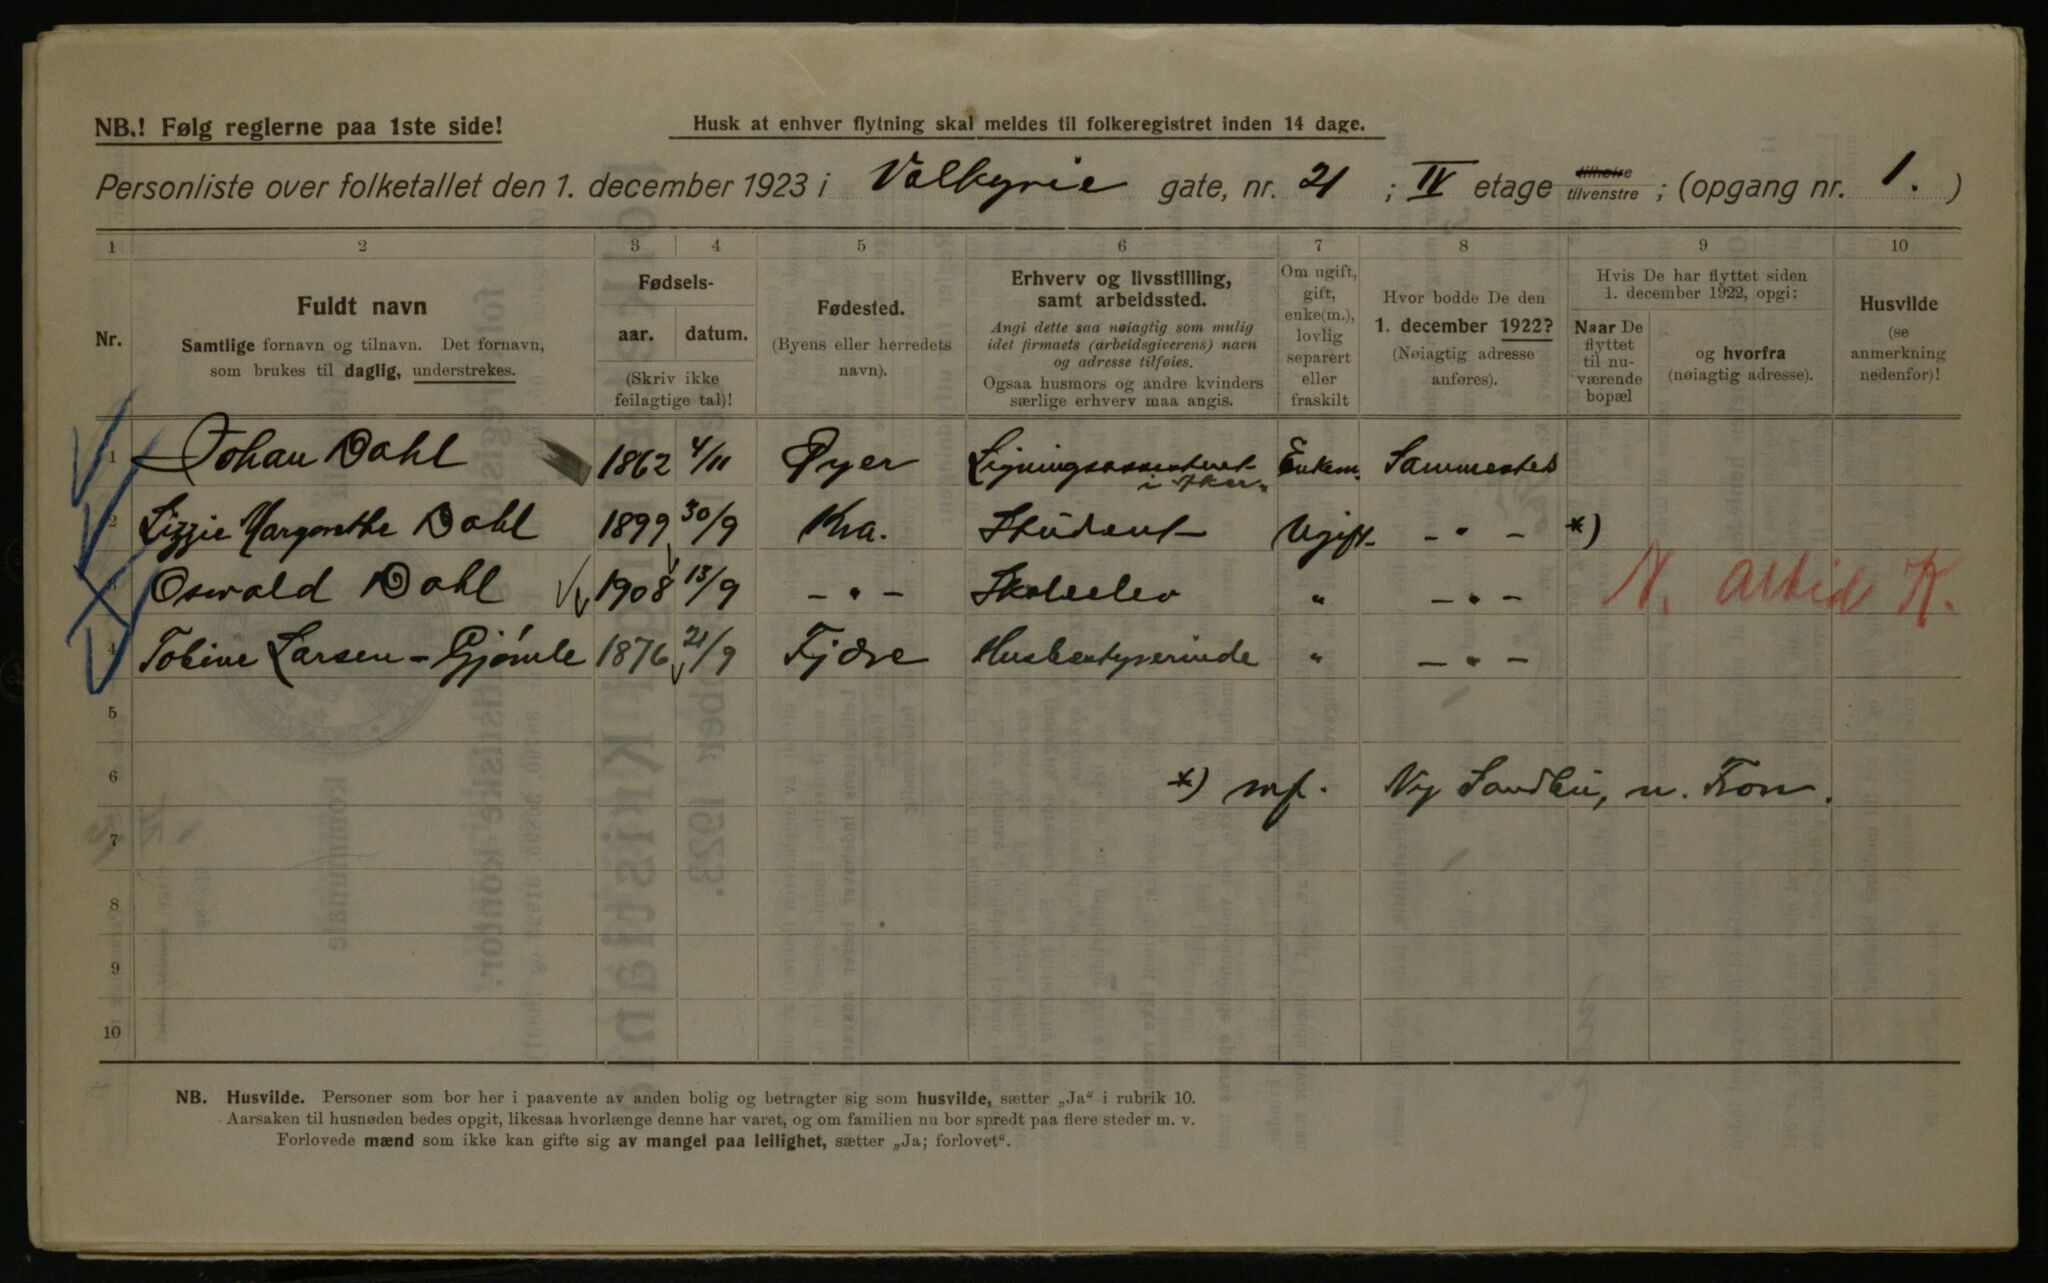 NB.! Følg reglerne paa 1ste side!
Husk at enhver flytning skal meldes til folkeregistret inden 14 dage.
Personliste over folketallet den 1. december 1923 i Valkyrie gate, nr. 21 ; IV etage tilhøire tilvenstre ; (opgang nr. 1. )
1 2 3 4 5 6 7 8 9 10
Nr.
Fuldt navn
Samtlige fornavn og tilnavn. Det fornavn,
som brukes til daglig, understrekes.
Fødsels-
aar. datum.
(Skriv ikke
feilagtige tal)!
Fødested.
(Byens eller herredets
navn).
Erhverv og livsstilling,
samt arbeidssted.
Angi dette saa nøiagtig som mulig
idet firmaets (arbeidsgiverens) navn
og adresse tilføies.
Ogsaa husmors og andre kvinders
særlige erhverv maa angis.
Om ugift,
gift,
enke(m.),
lovlig
separert
eller
fraskilt
Hvor bodde De den
1. december 1922?
(Nøiagtig adresse
anføres).
Hvis De har flyttet siden
1. december 1922, opgi:
Naar De
flyttet
til nu-
værende
bopæl
og hvorfra
(nøiagtig adresse).
Husvilde
(se
anmerkning
nedenfor)!
1 Johan Dahl 1862 4/11 Øyer Ligningsassistent i Aker. Enkem. Sammested
2 Lizzie Margrethe Dahl 1899 30/9 Kra. Student Ugift - " - *)
3 Oswald Dahl 1908 13/9 - " - Skoleelev " - " -
N. arbid K.
4 Tobine Larsen-Gjømle 1876 21/9 Fjære Husbestyrerinde " - " -
5
6 *) mf. Ny Sandbu, n. Fron.
7
8
9
10
NB. Husvilde. Personer som bor her i paavente av anden bolig og betragter sig som husvilde, sætter „Ja“ i rubrik 10.
Aarsaken til husnøden bedes opgit, likesaa hvorlænge denne har varet, og om familien nu bor spredt paa flere steder m. v.
Forlovede mænd som ikke kan gifte sig av mangel paa leilighet, sætter „Ja; forlovet“.